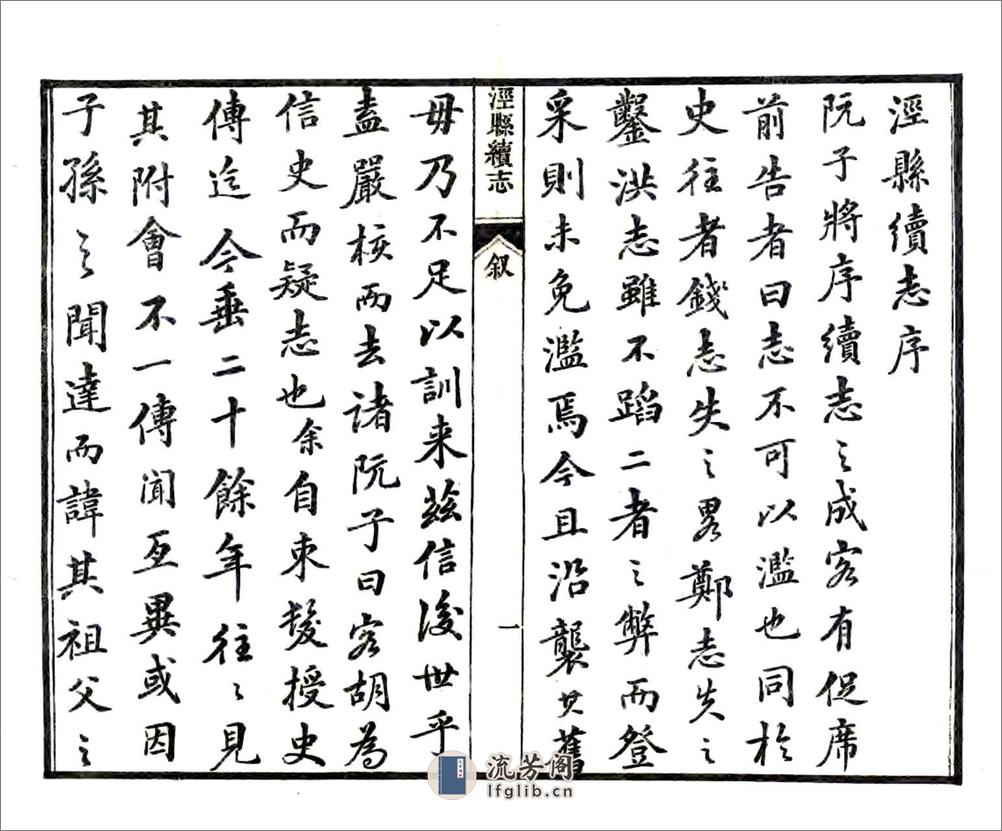 涇縣續志序
阮子將序續志之成客有促席
前告者曰志不可以濫也同於
史往者錢志失之畧鄭志失之
鑿洪志雖不蹈二者之弊而登
采則未免濫焉今且沿襲其舊
涇縣續志
叙
一
毋乃不足以訓来茲信後世乎
盍嚴核而去諸阮子曰客胡為
信史而疑志也余自束髮授史
傳迄今垂二十餘年往〻見
其附會不一傳聞互異或因
子孫之聞達而諱其祖父之
流芳阁
lfglib.cn